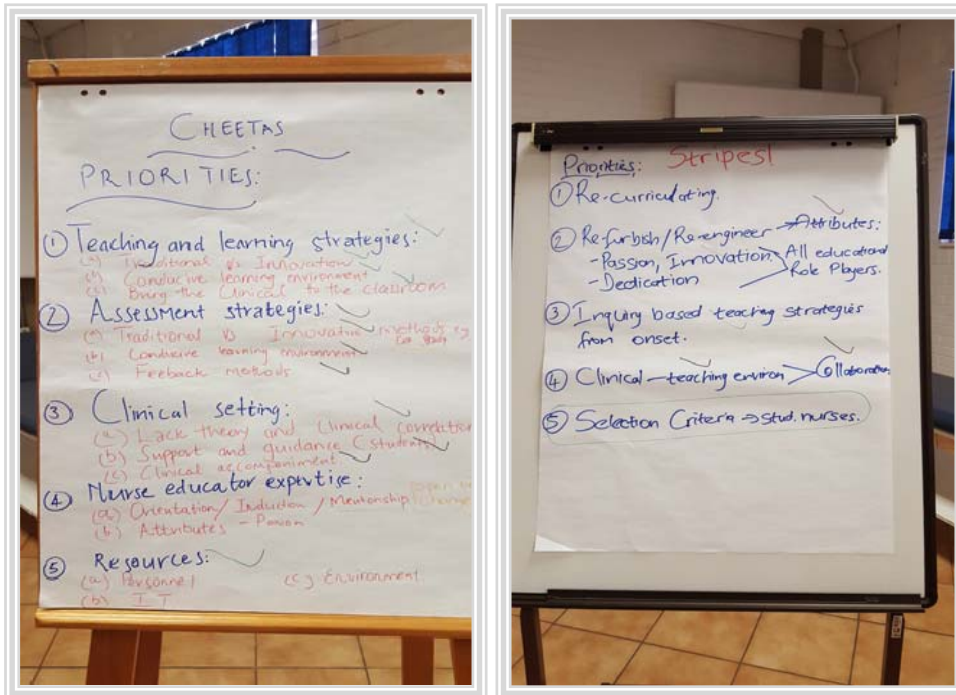 CHEETAS
PRIORITIES:
① Teaching and learning strategies:
(a) Traditional vs Innovation
(b) Conducive learning environment
(c) Bring the Clinical to the classroom
② Assessment strategies:
(a) Traditional vs Innovative methods eg
(b) Conducive learning environment
(c) Feeback methods
③ Clinical setting:
(a) Lack theory and Clinical correlation
(b) Support and guidance (students
(c) Clinical accompaniment
④ Nurse educator expertise:
(a) Orientation / Induction / Mentorship
(b) Attributes - Passion
⑤ Resources:
(a) Personnel (c) Environment
(b) IT
Priorities: Stripes!
① Re-curriculating.
② Re-furbish/Re-engineer → Attributes:
- Passion, Innovation All educational
- Dedication Role Players.
③ Inquiry based teaching strategies
from onset.
④ Clinical - teaching environ Collaboration
⑤ Selection Criteria → Stud. nurses.